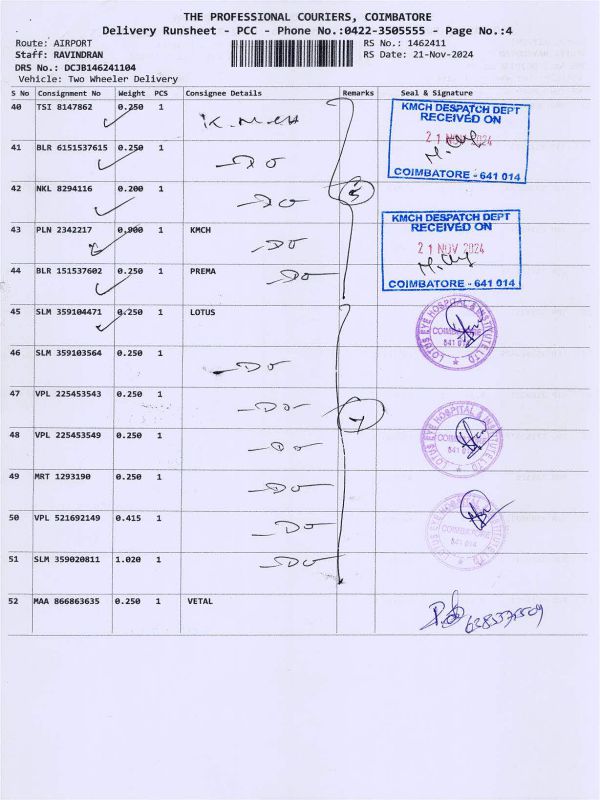 THE PROFESSIONAL COURIERS, COIMBATORE
Delivery Runsheet - PCC - Phone No.:0422-3505555 - Page No.:4
Route: AIRPORT RS No.: 1462411
Staff: RAVINDRAN RS Date: 21-Nov-2024
DRS No.: DCJB146241104
Vehicle: Two Wheeler Delivery
S No Consignment No Weight PCS Consignee Details Remarks Seal & Signature
40 TSI 8147862 0.250 1 K.M.C.H
KMCH DESPATCH DEPT
RECEIVED ON
21 NOV 2024
COIMBATORE - 641 014
41 BLR 6151537615 0.250 1 -Do
42 NKL 8294116 0.200 1 -Do 5
43 PLN 2342217 0.900 1 KMCH -Do
KMCH DESPATCH DEPT
RECEIVED ON
21 NOV 2024
COIMBATORE - 641 014
44 BLR 151537602 0.250 1 PREMA -Do
45 SLM 359104471 0.250 1 LOTUS
LOTUS EYE HOSPITAL & INSTITUTE LTD
46 SLM 359103564 0.250 1 -Do
47 VPL 225453543 0.250 1 -Do- 7
48 VPL 225453549 0.250 1 -Do
LOTUS EYE HOSPITAL & INSTITUTE LTD
49 MRT 1293190 0.250 1 -Do
50 VPL 521692149 0.415 1 -Do
LOTUS EYE HOSPITAL & INSTITUTE LTD
COIMBATORE
641 014
51 SLM 359020811 1.020 1 -Do
52 MAA 866863635 0.250 1 VETAL